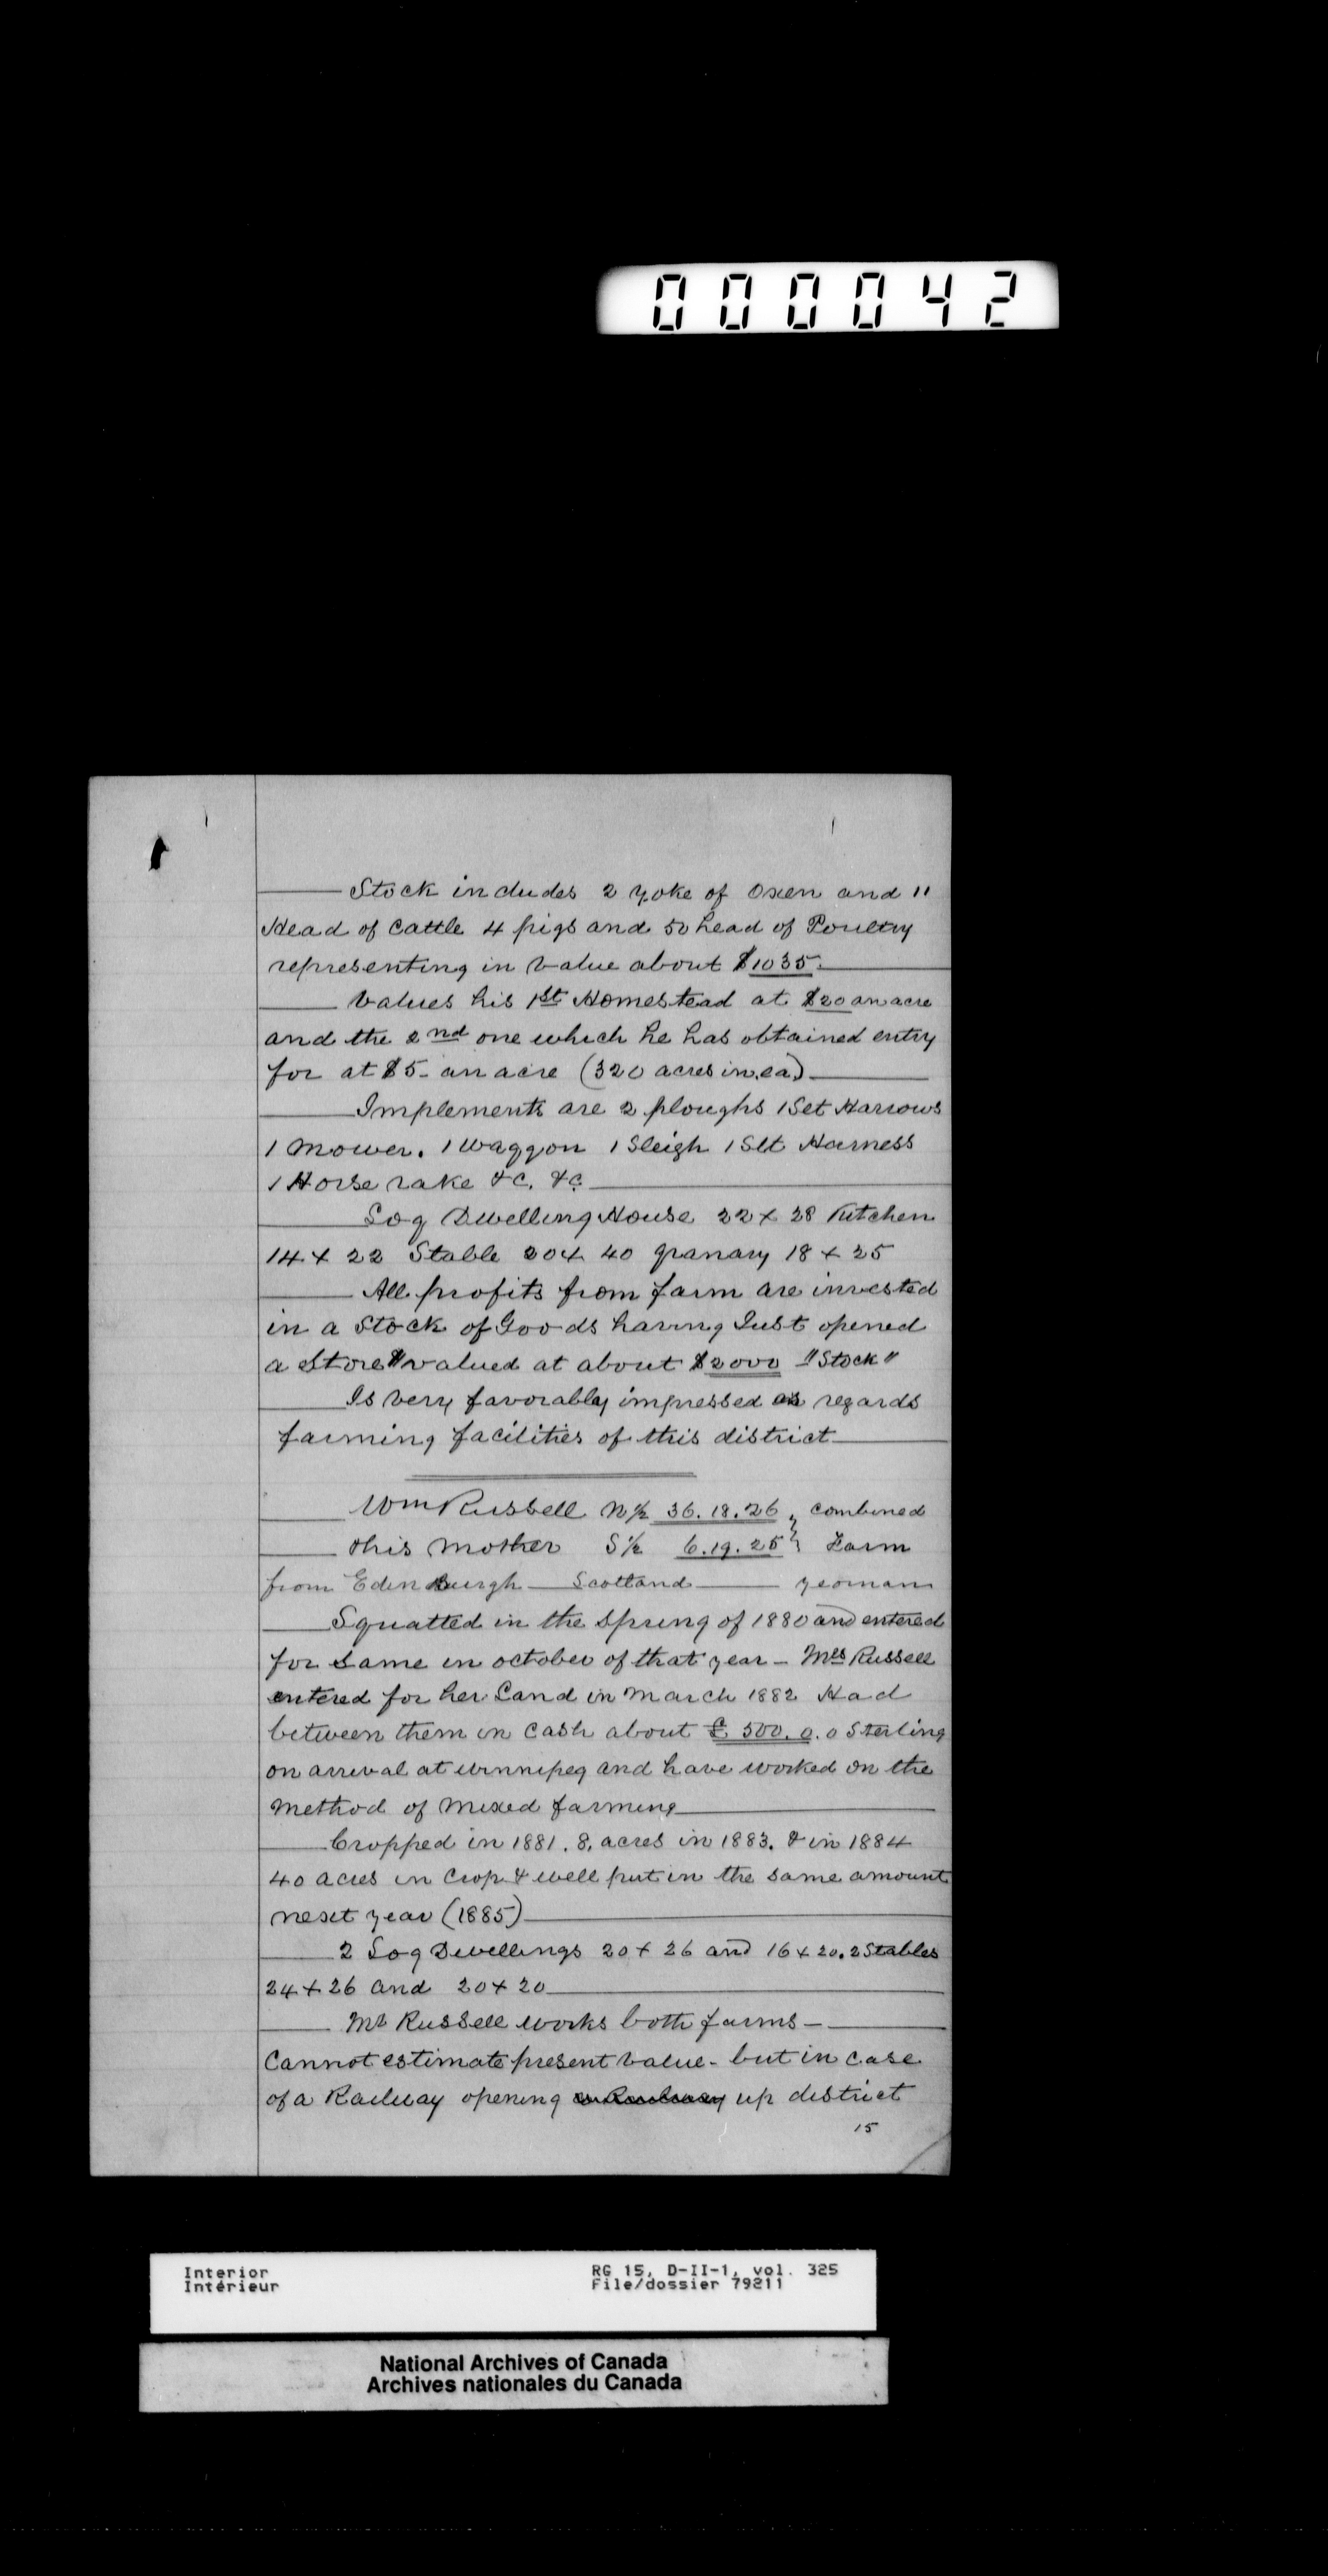 000042
Stock includes 2 yoke of Oxen and 11
Head of Cattle 4 pigs and 50 head of Poultry
representing in value about $1035.
Values his 1st Homestead at $20 an acre
and the 2nd one which he has obtained entry
for at $5- an acre (320 acres in ea)
Implements are 2 ploughs 1 Set Harrows
1 Mower. 1 Waggon 1 Sleigh 1 Set Harness
1 Horse rake &c. &c.
Log Dwelling House 22 x 28 Kitchen
14 x 22 Stable 20 x 40 granary 18 x 25
All profits from farm are invested
in a Stock of Goods having Just opened
a Store valued at about $2000 "Stock"
Is very favorably impressed as regards
farming facilities of this district
Wm Russell N½ 36.18.26 } combined
& his Mother S½ 6.19.25 } Farm
from Edinburgh Scotland yeoman
Squatted in the Spring of 1880 and entered
for same in october of that year - Mrs Russell
entered for her Land in March 1882 Had
between them in Cash about £ 500.0.0 Sterling
on arrival at Winnipeg and have worked on the
Method of Mixed farming
Cropped in 1881. 8, acres in 1883. & in 1884
40 acres in Crop & will put in the same amount
next year (1885)
2 Log Dwellings 20 x 26 and 16 x 20. 2 Stables
24 x 26 and 20 x 20
Mr Russell works both farms -
Cannot estimate present value - but in case
of a Railway opening up district
15
Interior
Intérieur
RG 15, D-II-1, vol. 325
File/dossier 79211
National Archives of Canada
Archives nationales du Canada